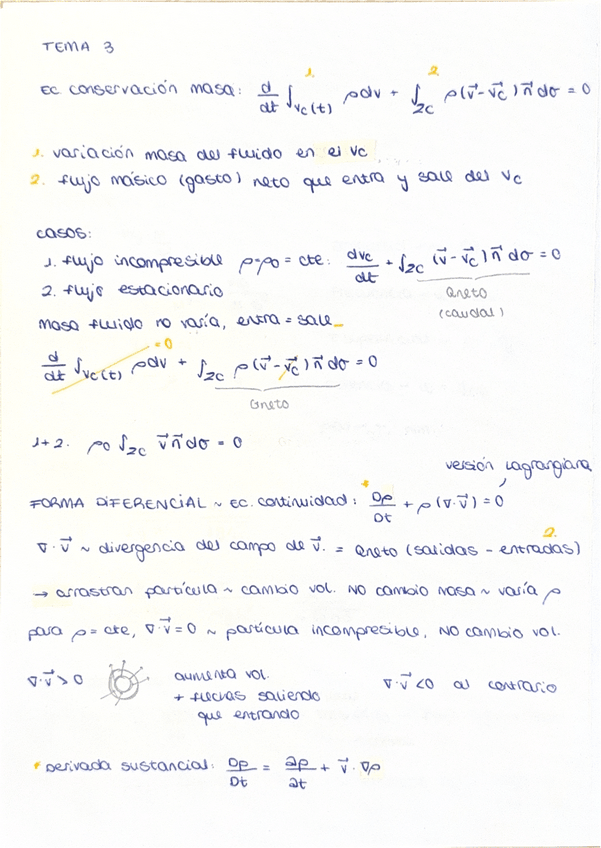 TEMA 3
Ec conservación masa: d/dt ∫Vc(t) ρdv + ∫Σc ρ(v⃗-v⃗c)n⃗dσ = 0
1. 2.
1. variación masa del fluido en el Vc
2. flujo másico (gasto) neto que entra y sale del Vc
casos:
1. flujo incompresible ρ=ρ0 = cte: dVc/dt + ∫Σc (v⃗-v⃗c)n⃗dσ = 0
2. flujo estacionario
Qneto
(caudal)
masa fluido no varía, entra = sale
= 0
d/dt ∫Vc(t) ρdv + ∫Σc ρ(v⃗-v⃗c)n⃗dσ = 0
Gneto
1+2. ρ0 ∫Σc v⃗n⃗dσ = 0
versión Lagrangiana
FORMA DIFERENCIAL ~ Ec. continuidad: * Dρ/Dt + ρ(∇·v⃗) = 0
2.
∇·v⃗ ~ divergencia del campo de v⃗. = Qneto (salidas - entradas)
→ arrastran partícula ~ cambio vol. NO cambio masa ~ varía ρ
para ρ = cte, ∇·v⃗ = 0 ~ partícula incompresible, NO cambio vol.
∇·v⃗ > 0 aumenta vol. ∇·v⃗ < 0 al contrario
+ flechas saliendo
que entrando
* Derivada sustancial: Dρ/Dt = ∂ρ/∂t + v⃗·∇ρ